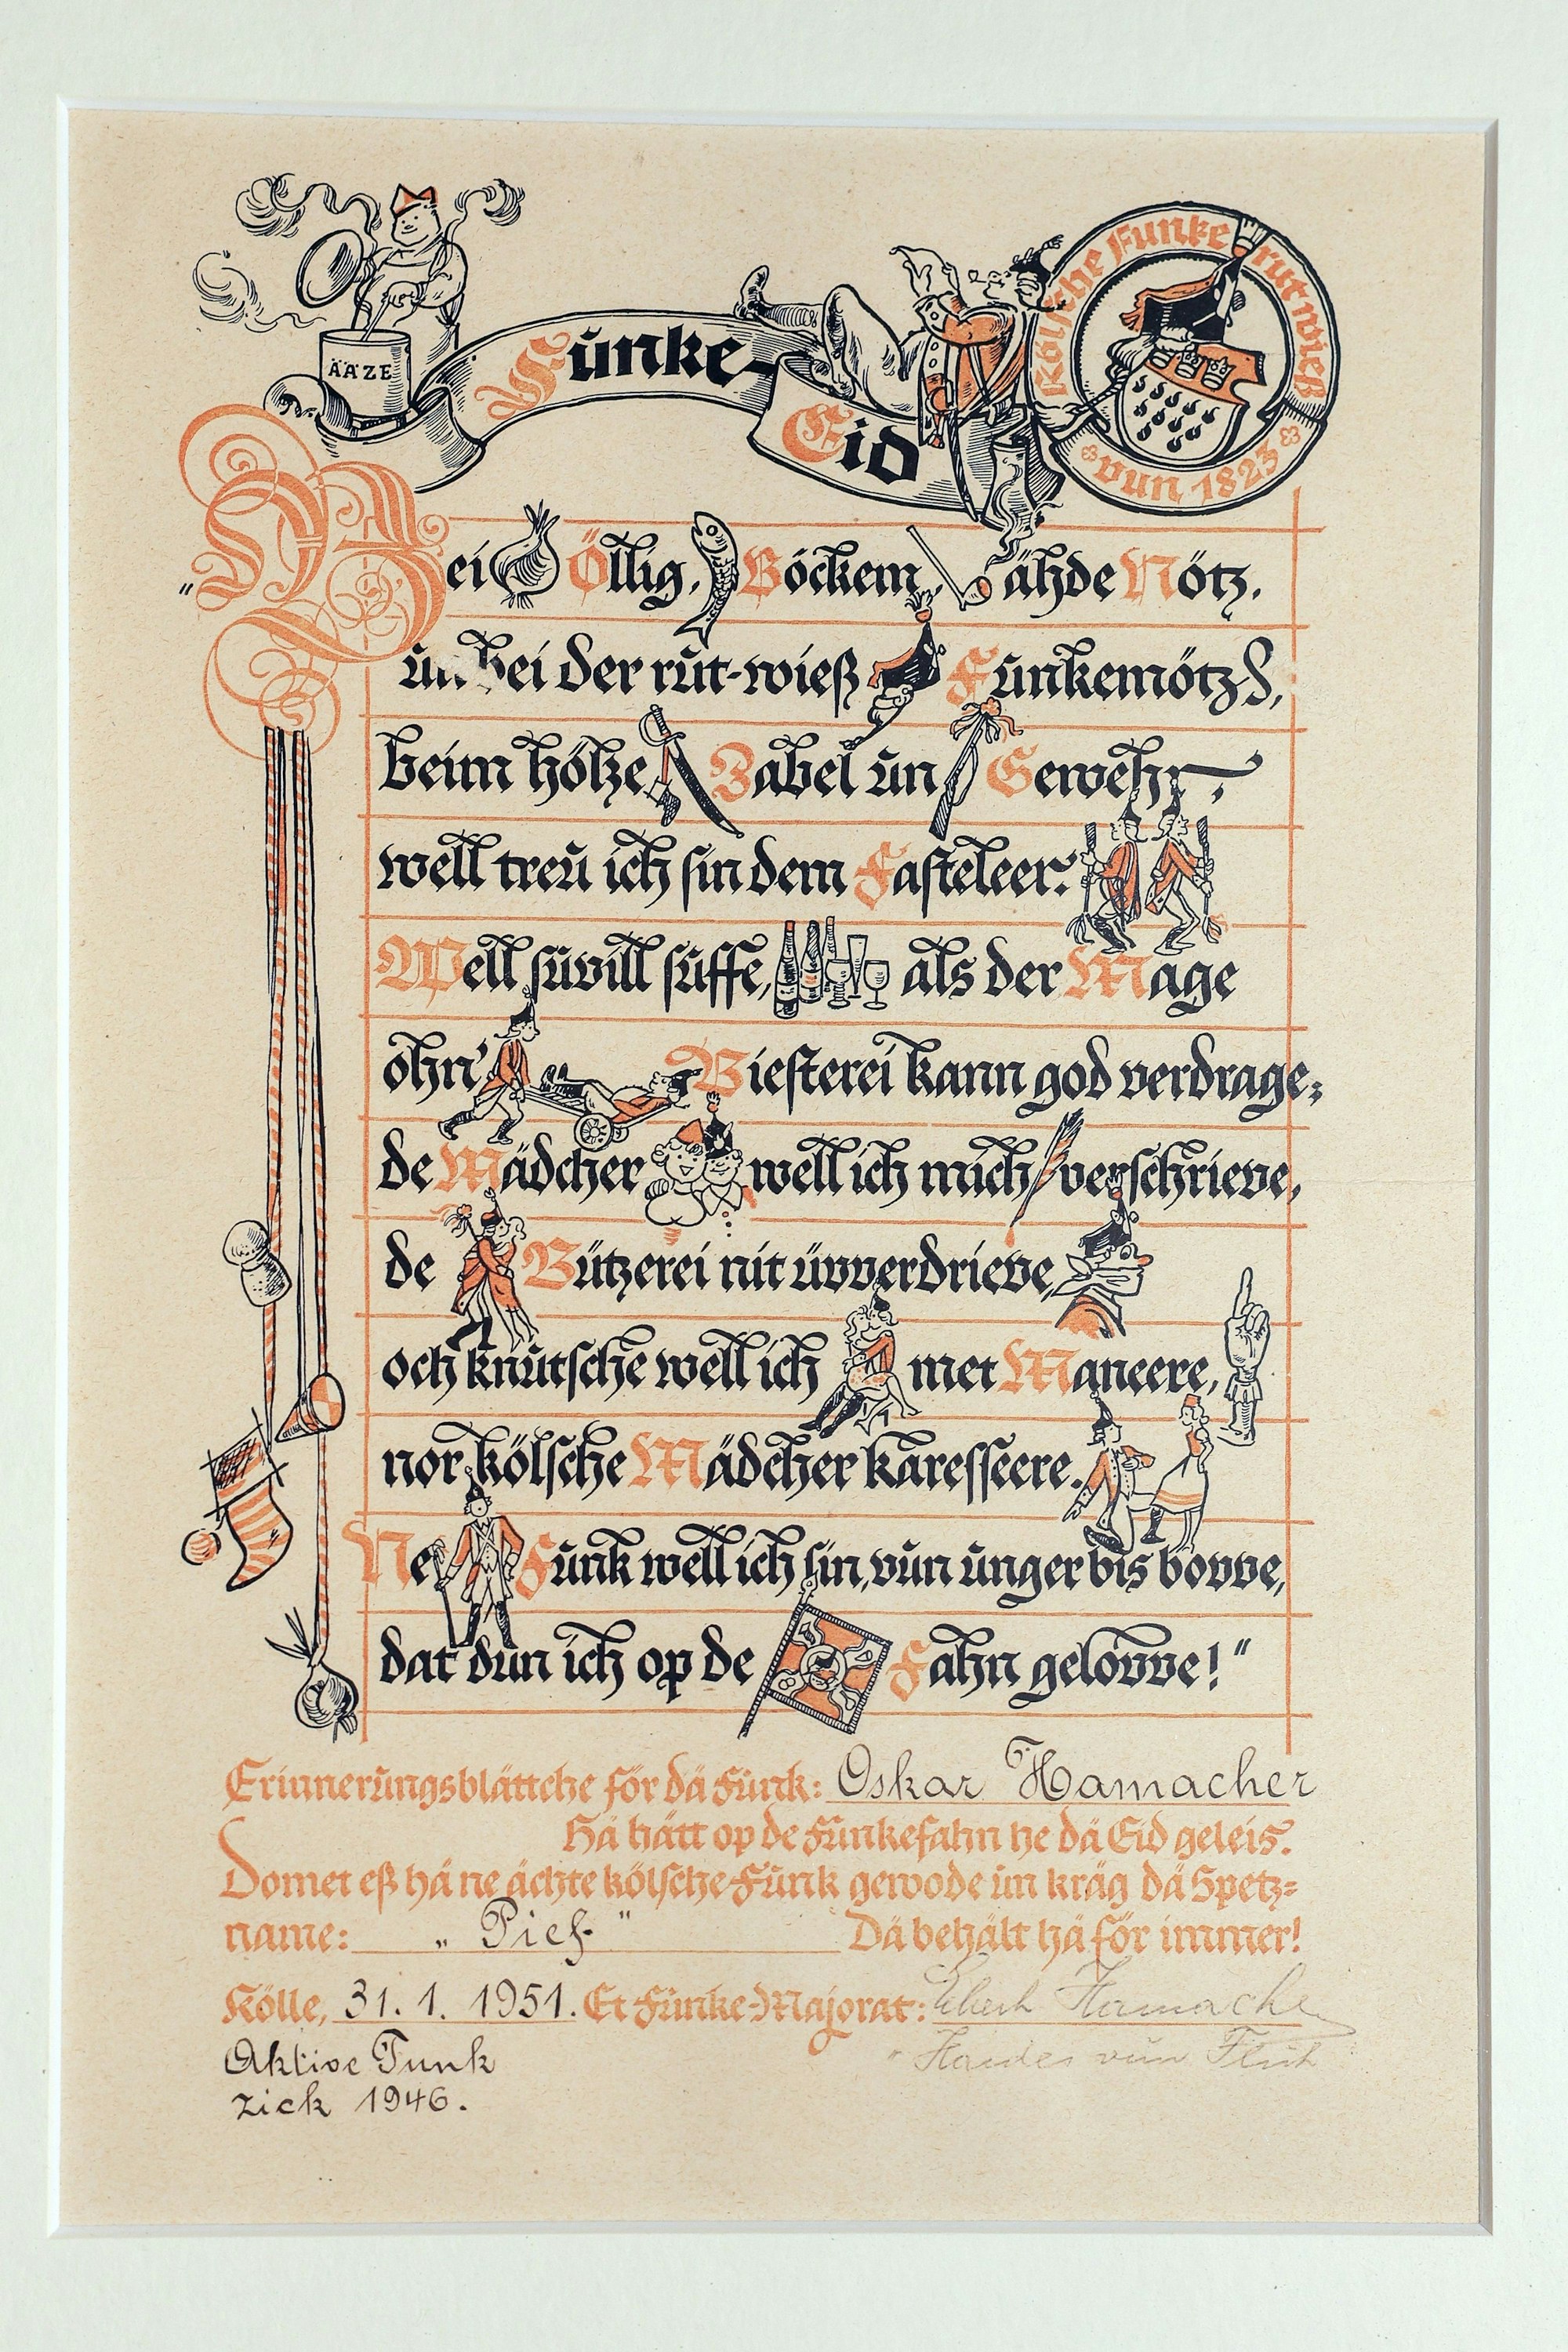 ÄÄZE
Funke-
Eid
Kölsche Funke rut wieß
vun 1823
„Bei Öllig, Böckem, ähde Nötz,
un bei der rut-wieß Funkemötz,
beim hölze Zabel un Gewehr,
well treu ich sin dem Fasteleer.
Well suvill suffe, als der Mage
ohn' Biesterei kann god verdrage;
de Mädcher well ich mich verschrieve,
de Bützerei nit üvverdrieve,
och knutsche well ich met Maneere,
nor kölsche Mädcher karesseere.
Ne Funk well ich sin, vun unger bis bovve,
dat dun ich op de Fahn gelovve!"
Erinnerungsblättche för dä Funk: Oskar Hamacher
Hä hätt op de Funkefahn he dä Eid geleis.
Domet eß hä ne ächte kölsche Funk gewode un kräg dä Spetz=
name: „Pief" Dä behält hä för immer!
Kölle, 31. 1. 1951. Et Funke-Majorat: Hamacher
Aktive Funk
zick 1946.